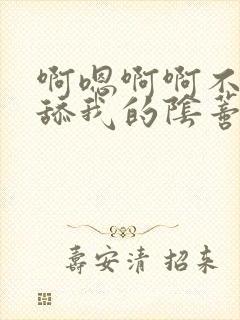 啊嗯啊啊不
舔我的阴蒂
寿安清 招来